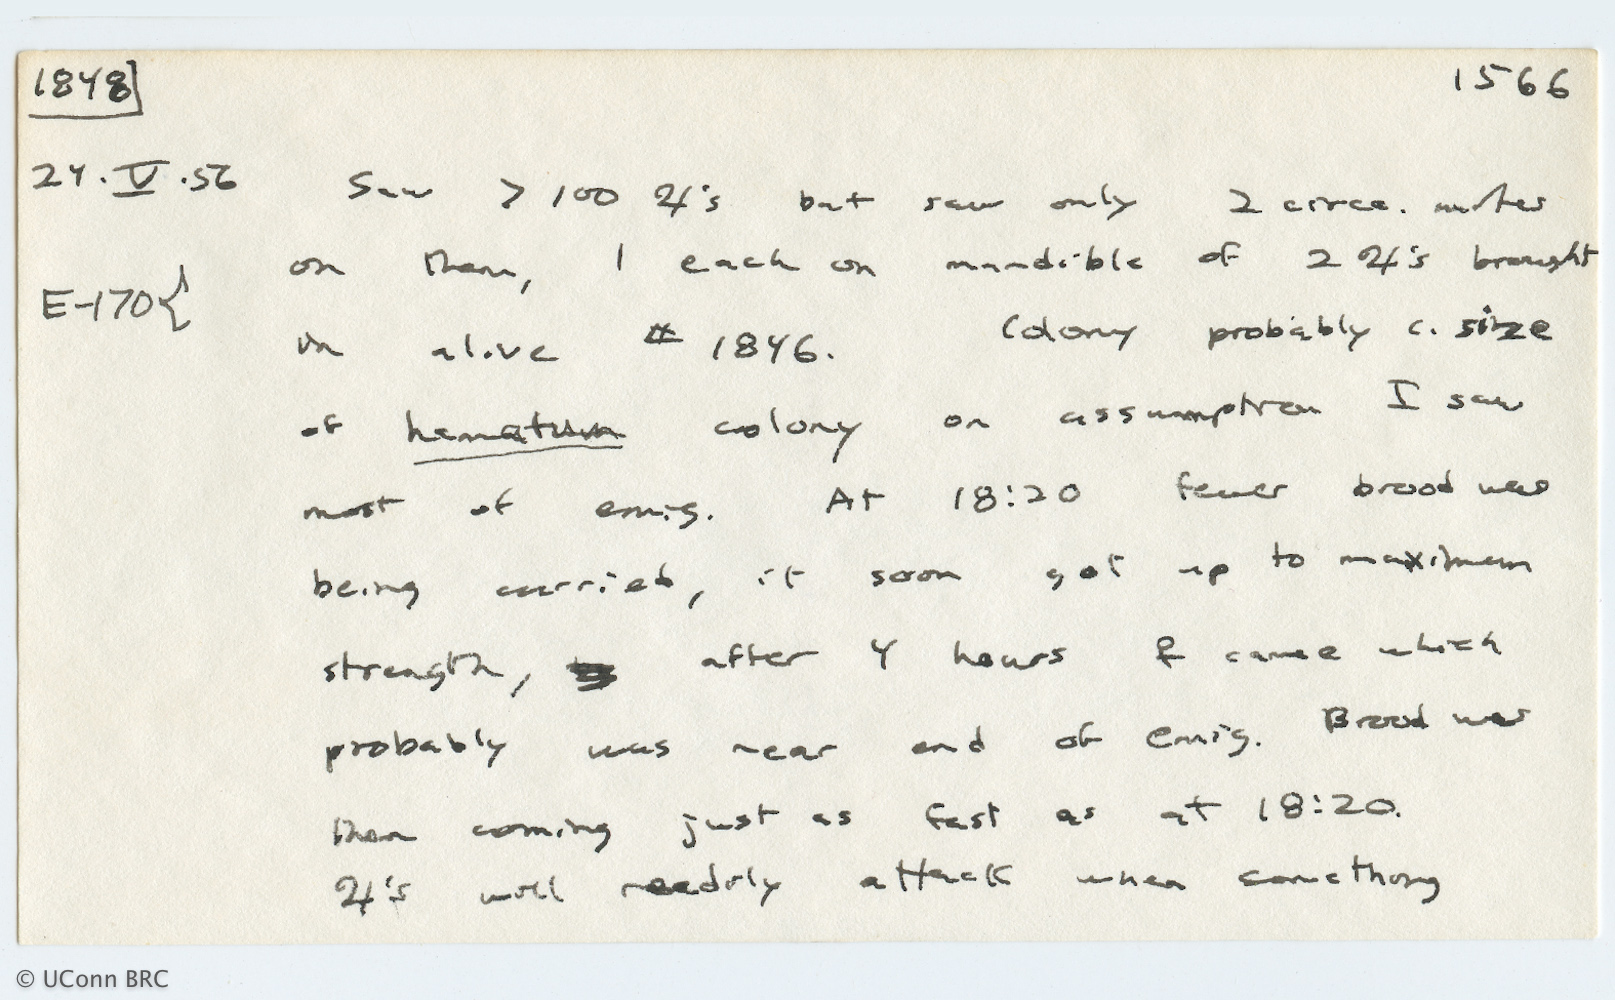 1848] 1566
24.V.56 Saw > 100 ♃'s but saw only 2 circe. mites
on them, 1 each on mandible of 2 ♃'s brought
E-170{
in alive # 1846. Colony probably c. size
of hamatum colony on assumption I saw
most of emig. At 18:20 fewer brood was
being carried, it soon got up to maximum
strength, after 4 hours & came which
probably was near end of emig. Brood was
then coming just as fast as at 18:20.
♃'s will readily attack when something
© UConn BRC